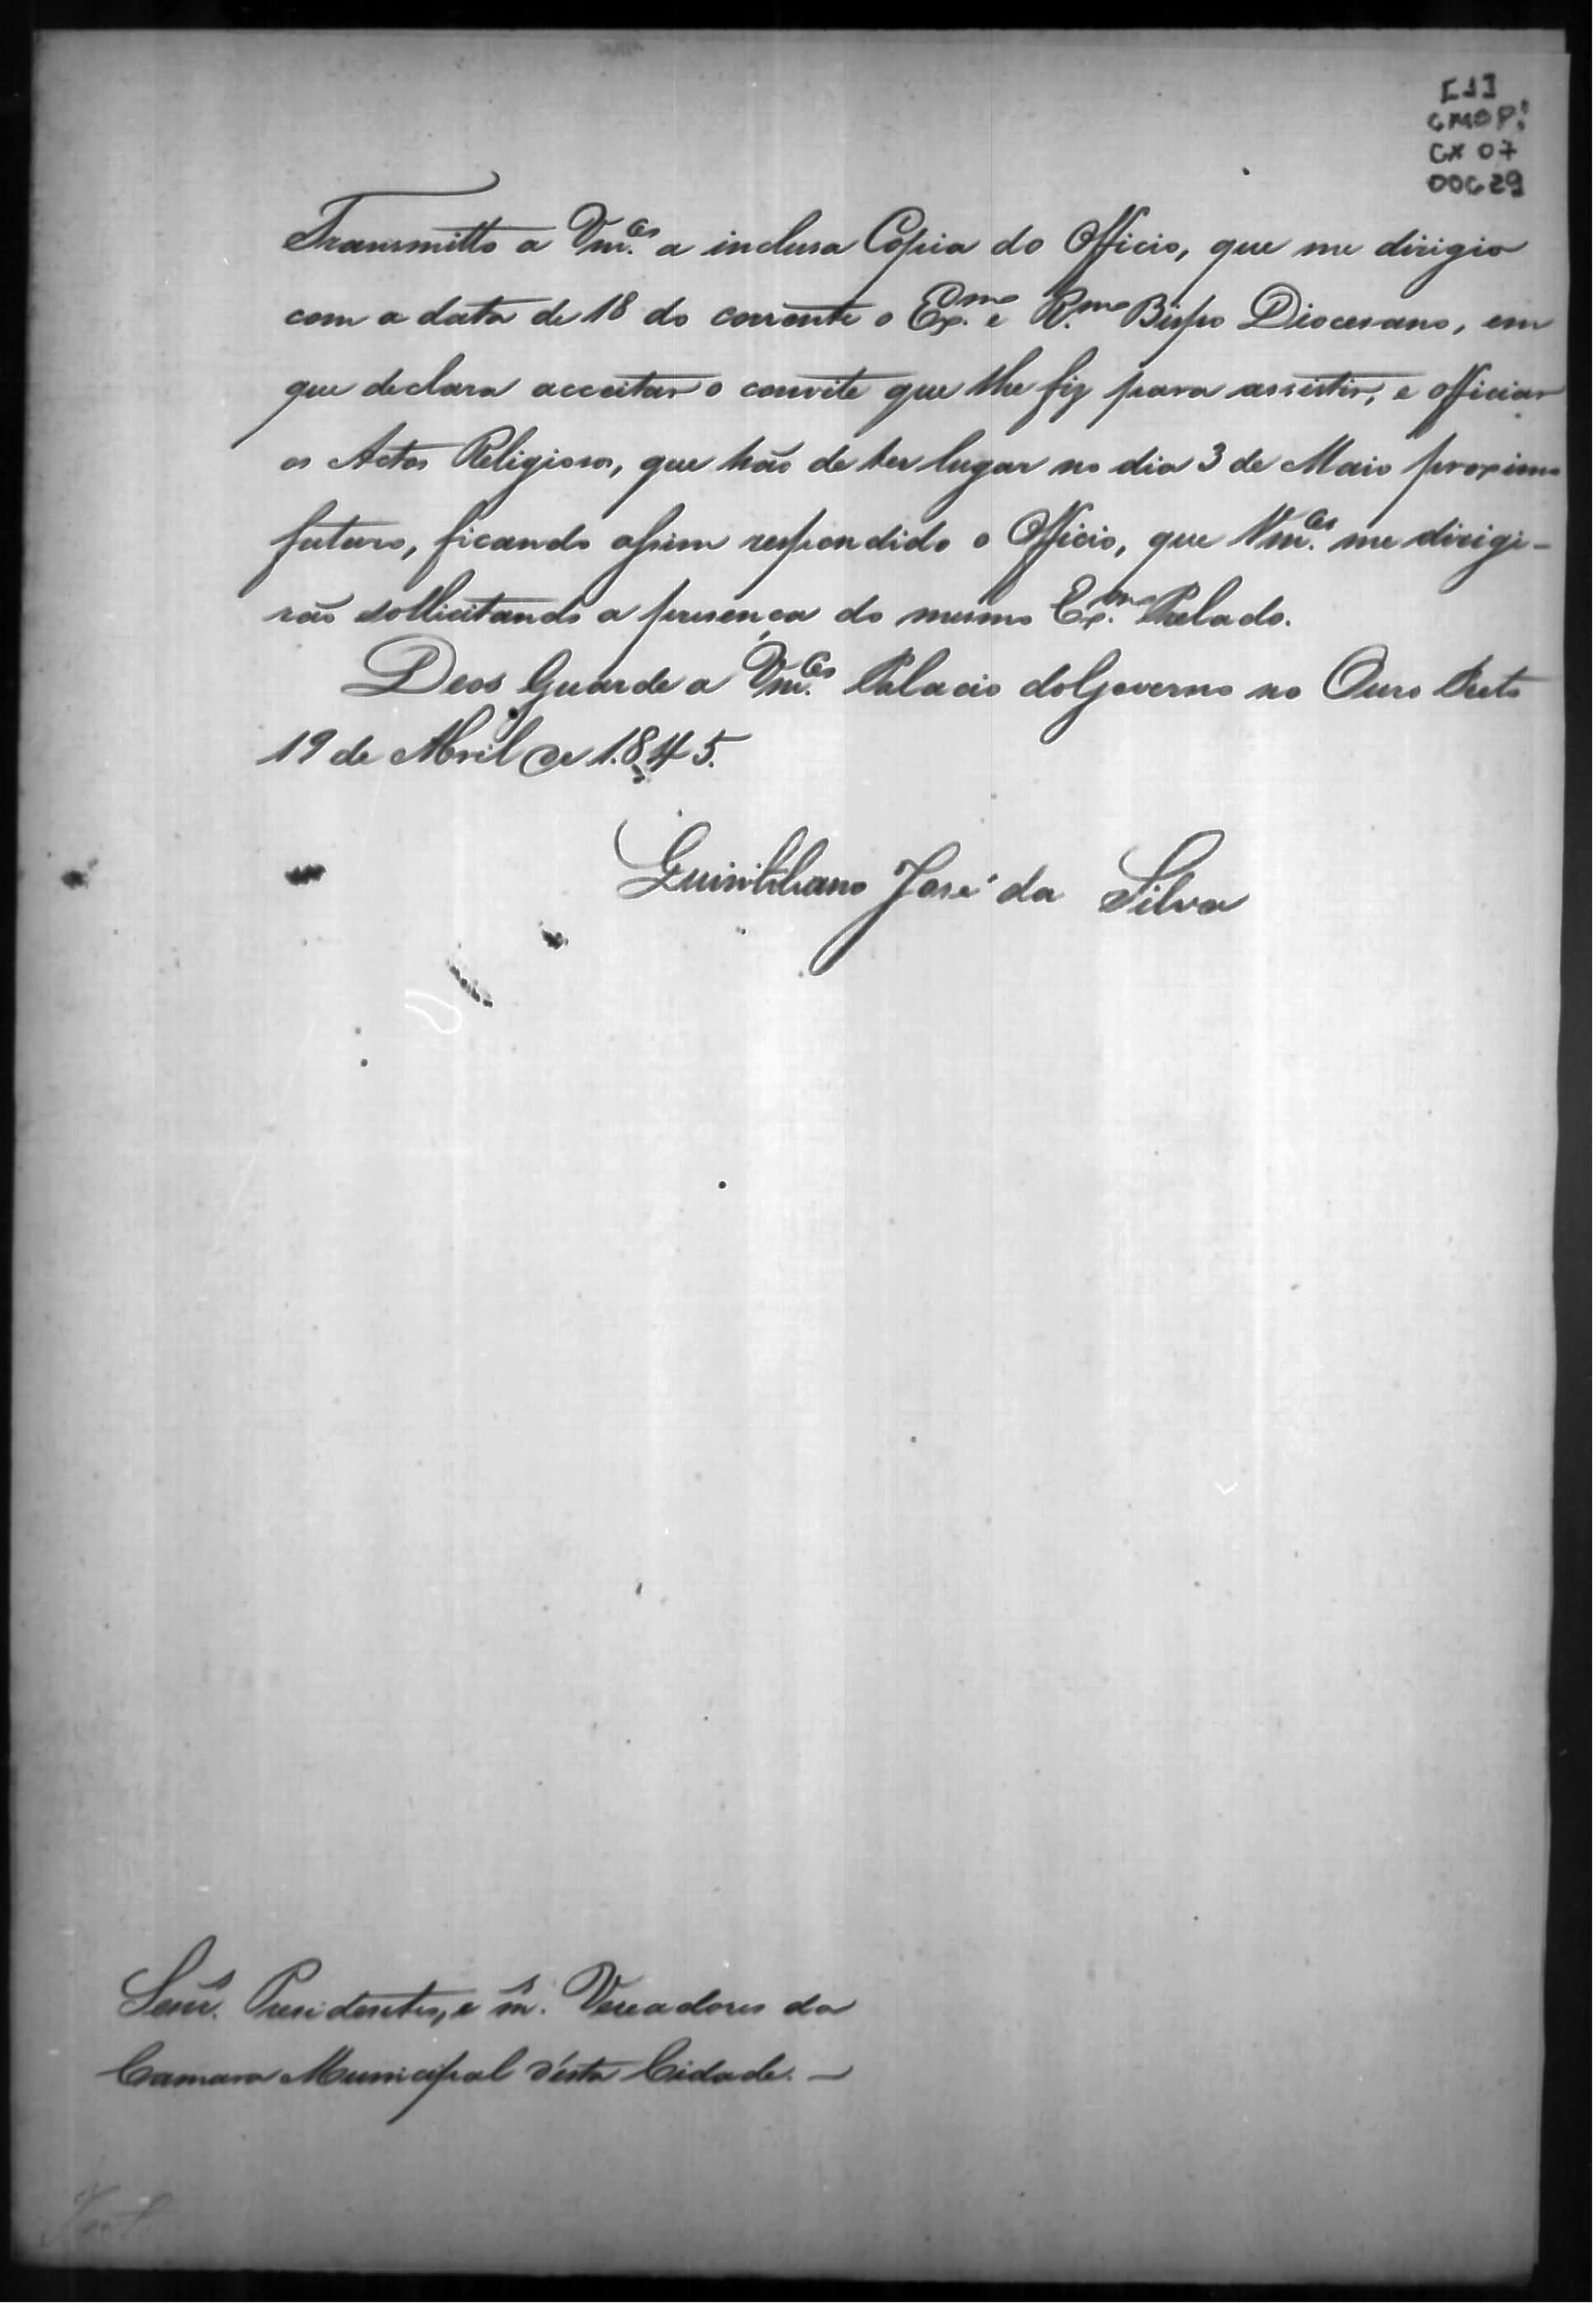 [1]
CMOP
CX 07
00629
Transmitto a Vm.ces a inclusa Copia do Officio, que me dirigio
com a data de 18 do corrente o Ex.mo e R.mo Bispo Diocesano, em
que declara acceitar o convite que lhe fiz para assistir, e officiar
os Actos Religiosos, que hão de ter lugar no dia 3 de Maio proximo
futuro, ficando assim respondido o Officio, que Vm.ces me dirigi-
rão sollicitando a presença do mesmo Ex.mo Prelado.
Deos Guarde a Vm.ces Palacio do Governo no Ouro Preto
19 de Abril de 1.845.
Quintiliano José da Silva
Senr.s Presidente, e m.s Vereadores da
Camara Municipal d'esta Cidade. -